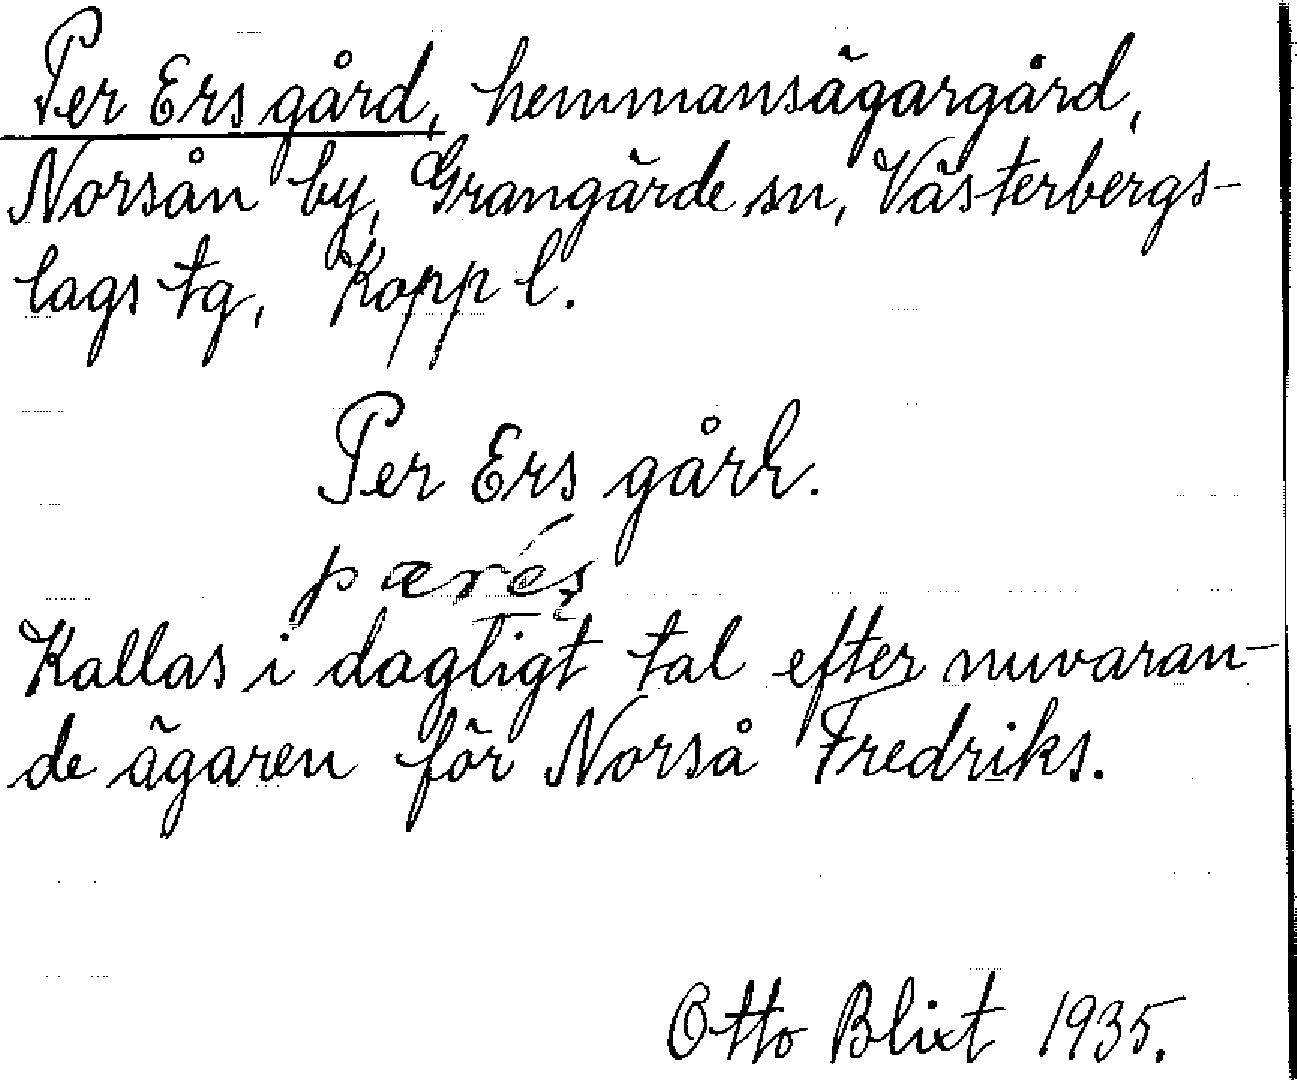 Per Ers gård, hemmansägargård,
Norsån by, Grangärde sn, Västerbergs-
lags tg, Kopp l.
Per Ers gårk.
pærés
Kallas i dagligt tal efter nuvaran-
de ägaren för Norså Fredriks.
Otto Blixt 1935.